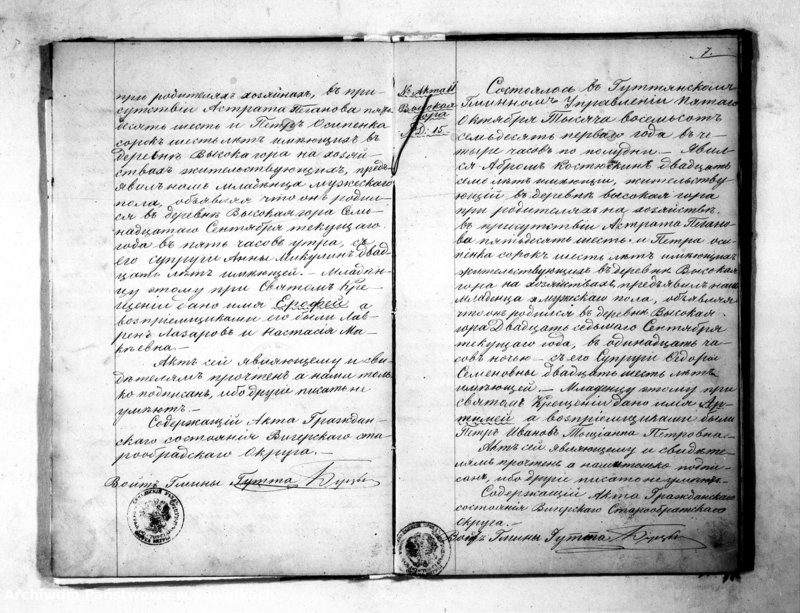 при родителяхъ хозяйнахъ, въ при-
сутствіи Астрата Иванова пять-
десятъ шесть и Петръ Осипенка
сорокъ шесть лѣтъ имѣющихъ въ
деревнѣ Высока гора на хозяй-
ствахъ жительствующихъ, предъ-
явилъ намъ младенца мужескаго
пола, объявляя что онъ родил-
ся въ деревнѣ Высокая гора Сем-
надцатаго Сентября текущаго
года въ пять часовъ утра, съ
его супруги Анны Микулинъ двад-
цать лѣтъ имѣющей. — Младен-
цу этому при Святомъ Кре-
щеніи дано имя Ерофей а
воспріемниками его были Лав-
рен Лазаровъ и Настасія Ма-
кѣевна. —
Актъ сей являющему и сви-
дѣтелямъ прочтенъ а нами толь-
ко подписанъ, ибо другіе писать не
умѣютъ. —
Содержащій Акта Граждан-
скаго состоянія Вигерскаго ста-
рообрадскаго Округа. —
Войтъ Гмины Гутта
№ Акта 11
Высокая
гора
№ Д. 15.
7.
Состоялось въ Гуттянскомъ
Гминномъ Управленіи Пятаго
Октября Тысяча восемьсотъ
семьдесятъ перваго года въ че-
тыре часовъ по полудни. — Явил-
ся Абромъ двадцать
семь лѣтъ имѣющій, жительству-
ющій въ деревнѣ высокая гора
при родителяхъ на хозяйствѣ.
въ присутствіи Астрата Ивано-
ва пятьдесятъ шесть и Петра оси-
пенка сорокъ шесть лѣтъ имѣющихъ
жительствующихъ въ деревнѣ Высокая
гора на хозяйствахъ предъявилъ намъ
младенца мужскаго пола, объявляя
что онъ родился въ деревнѣ Высокая
гора Двадцать седьмаго Сентября
текущаго года, въ одинадцать ча-
совъ ночью — съ его Супругій Ѳедоры
Семеновны двадцать шесть лѣтъ
имѣющей. — Младенцу этому при
святомъ Крещеніи дано имя Ар-
тимей а воспріемниками были
Петръ Ивановъ Петровна. —
Актъ сей являющему и свидѣте-
лямъ прочтенъ а нами только подпи-
санъ, ибо другіе писать не умѣютъ. —
Содержащій Акта Гражданскаго
состоянія Вигерскаго Старообрадскаго
Округа. —
Войтъ Гмины Гутта
Archiwum Państwowe w Suwałkach